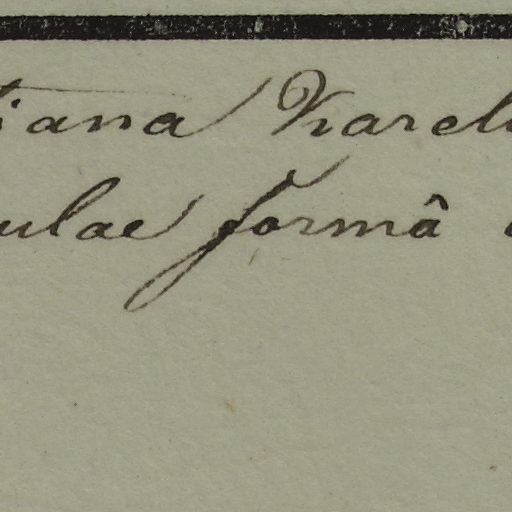 iana Karel
ulae formâ